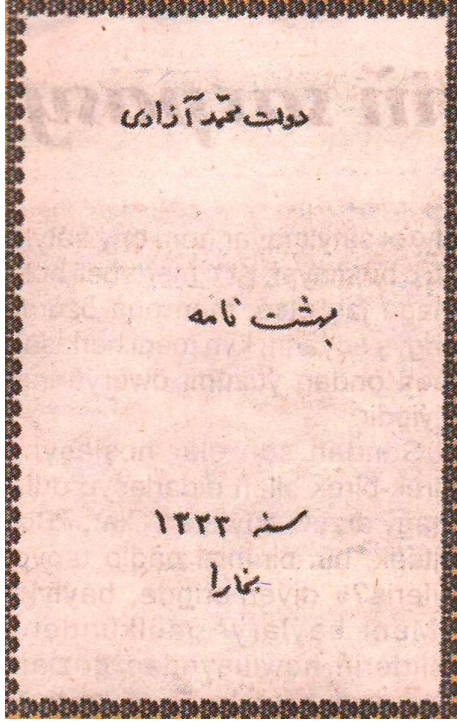 دولت محمد آزادی
بهشت نامه
سنه ۱۳۳۳
بخارا